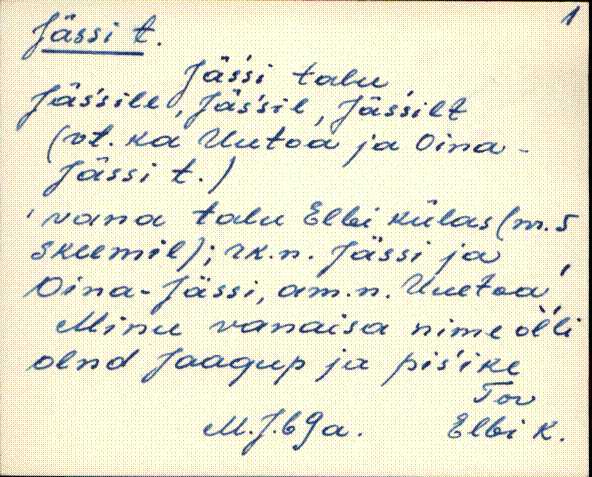 1
Jässi t.
Jäśsi talu
Jäśsile, Jäśsil, Jäśsilt
(vt. ka Uutoa ja Oina-
Jässi t.)
'vana talu Elbi külas (nr. 5
skeemil); rk.n. Jässi ja
Oina-Jässi, am.n. Uuetoa'
Minu vanaisa nime oĺli
olnd Jaagup ja piśike
Tov
M.J. 69a. Elbi k.